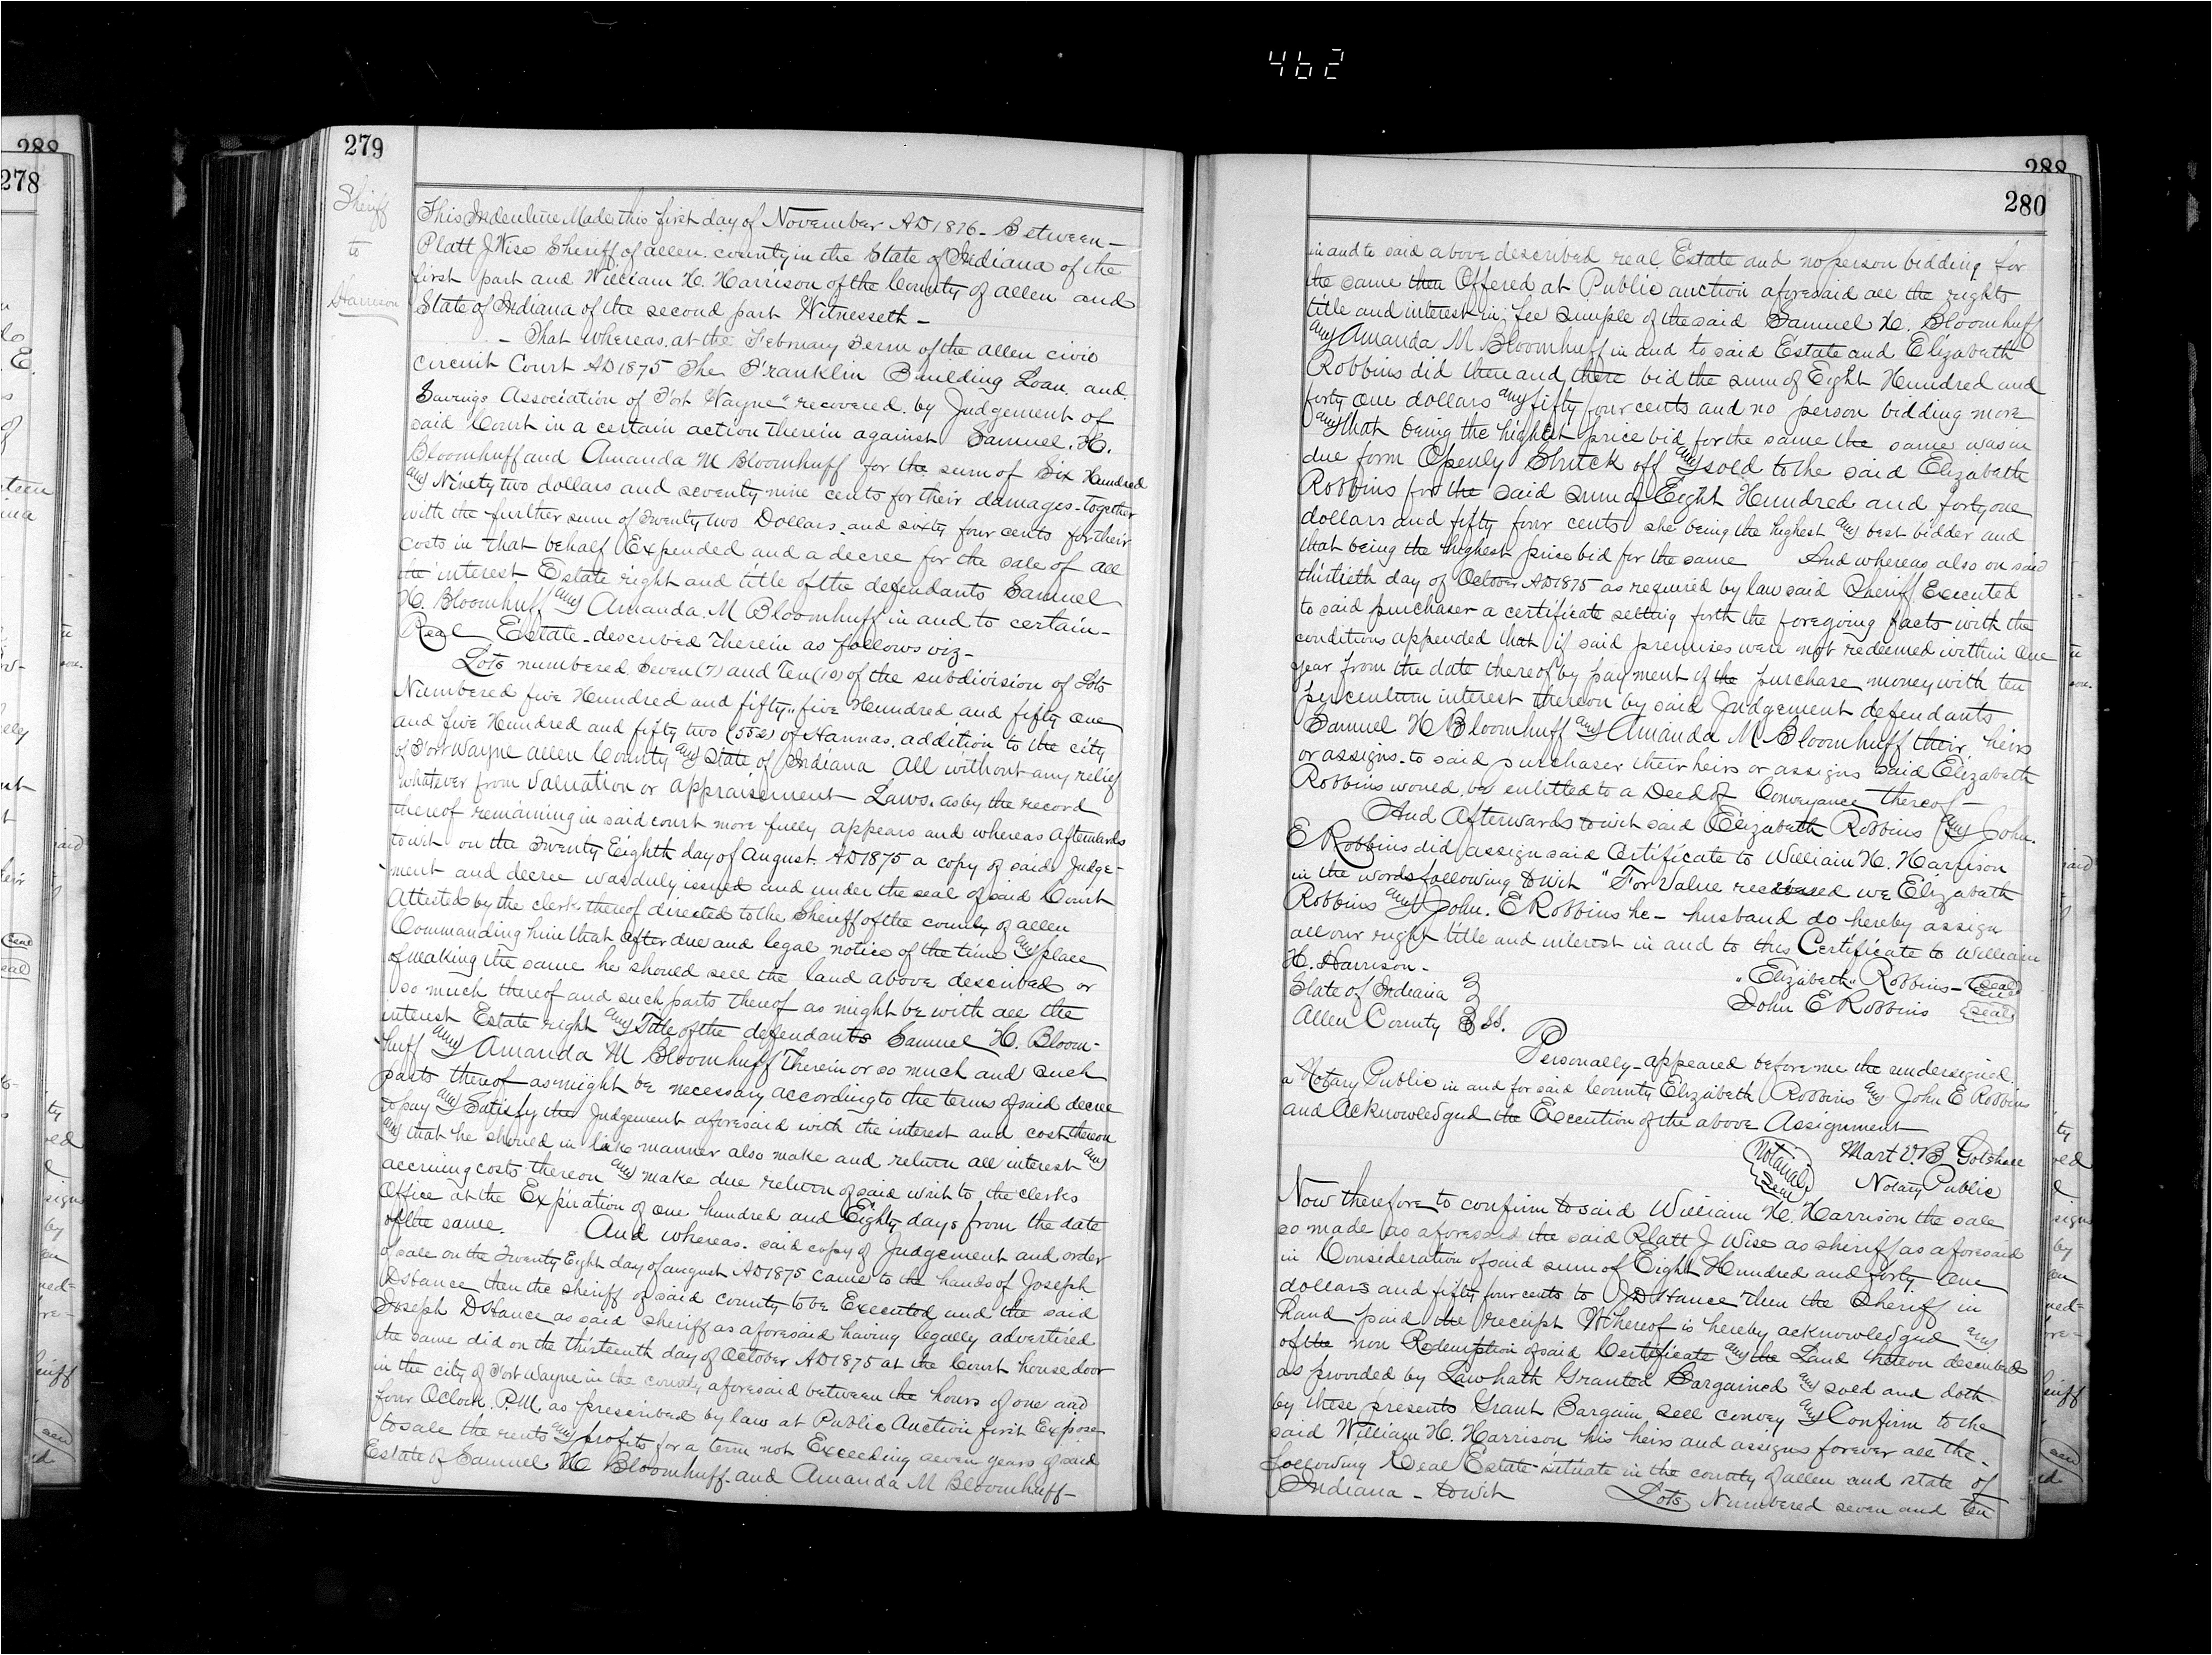 462
288
278
279
Sheriff
to
Harrison
This Indenture Made this first day of November AD 1876 - Between -
Platt J Wise Sheriff of allen county in the State of Indiana of the
first part and William H. Harrison of the County of allen and
State of Indiana of the second part Witnesseth -
- That whereas at the February Term of the allen civic
circuit Court AD 1875 The Franklin Building Loan and
Savings Association of Fort Wayne" recovered by Judgement of
said Court in a certain action therein against Samuel H.
Bloomhuff and Amanda M Bloomhuff for the sum of Six Hundred
any Ninety two dollars and seventy nine cents for their damages together
with the further sum of Twenty two Dollars and sixty four cents for their
costs in that behalf Expended and a decree for the sale of all
the interest Estate right and title of the defendants Samuel
H. Bloomhuff any Amanda M Bloomhuff in and to certain -
Real Estate described Therein as follows viz -
Lots numbered Seven (7) and Ten (10) of the subdivision of Lots
Numbered five Hundred and fifty " five Hundred and fifty one
and five Hundred and fifty two (552) of Hannas addition to the city
of Fort Wayne allen County any State of Indiana All without any relief
whatever from Valuation or appraisement Laws. as by the record
thereof remaining in said court more fully appears and whereas afterwards
to wit on the Twenty Eighth day of august AD 1875 a copy of said Judge-
ment and decree was duly issued and under the seal of said Court
Attested by the clerk thereof directed to the Sheriff of the county of allen
Commanding him that after due and legal notice of the time any place
of making the same he should sell the land above described or
so much thereof and such parts thereof as might be with all the
interest Estate right any Title of the defendants Samuel H. Bloom-
huff any Amanda M Bloomhuff Therein or so much and such
parts thereof as might be necessary according to the terms of said decree
to pay any Satisfy the Judgement aforesaid with the interest and cost thereon
any that he should in like manner also make and return all interest any
accruing costs thereon any make due return of said writ to the clerks
Office at the Expiration of one hundred and Eighty days from the date
of the same. And whereas said copy of Judgement and order
of sale on the Twenty Eight day of august AD 1875 came to the hands of Joseph
D Stance then the sheriff of said county to be Executed and the said
Joseph D Stance as said Sheriff as aforesaid having legally advertised
the same did on the thirteenth day of October AD 1875 at the Court house door
in the city of Fort Wayne in the county aforesaid between the hours of one and
four Oclock P.M. as prescribed by law at Public Auction first Expose
to sale the rents any profits for a term not Exceeding seven years of said
Estate of Samuel H Bloomhuff and Amanda M Bloomhuff -
288
280
in and to said above described real Estate and no person bidding for
the same then Offered at Public auction aforesaid all the rights
title and interest in fee simple of the said Samuel H. Bloomhuff
any Amanda M Bloomhuff in and to said Estate and Elizabeth
Robbins did then and there bid the sum of Eight Hundred and
forty one dollars any fifty four cents and no person bidding more
any that being the highest price bid for the same the same was in
due form Openly Struck off any sold to the said Elizabeth
Robbins for the said sum of Eight Hundred and forty one
dollars and fifty four cents she being the highest any best bidder and
that being the highest price bid for the same And whereas also on said
thirtieth day of October AD 1875 as required by law said Sheriff Executed
to said purchaser a certificate setting forth the foregoing facts with the
conditions appended that if said premises were not redeemed within one
year from the date thereof by payment of the purchase money with ten
per centum interest thereon by said Judgement defendants
Samuel H Bloomhuff any Amanda M Bloomhuff their heirs
or assigns to said purchaser their heirs or assigns said Elizabeth
Robbins would be entitled to a Deed of Conveyance thereof -
And Afterwards to wit said Elizabeth Robbins any John.
E Robbins did assign said Certificate to William H. Harrison
in the words following to wit "For Value received we Elizabeth
Robbins any John. E Robbins he - husband do hereby assign
all our right title and interest in and to this Certificate to William
H. Harrison -
"Elizabeth" Robbins - Seal
State of Indiana
John E Robbins Seal
Allen County SS.
Personally appeared before me the undersigned
a Notary Public in and for said County Elizabeth Robbins any John E Robbins
and Acknowledged the Execution of the above Assignment
Notarial Seal
Mart V. B Gotshall
Notary Public
Now therefore to confirm to said William H. Harrison the sale
so made as aforesaid the said Platt J Wise as sheriff as aforesaid
in Consideration of said sum of Eight Hundred and forty one
dollars and fifty four cents to J D Stance Then the Sheriff in
hand paid the receipt Whereof is hereby acknowledged any
of the non Redemption of said Certificate any the Land thereon described
as provided by Law hath Granted Bargained any sold and doth
by these presents Grant Bargain Sell convey any Confirm to the
said William H. Harrison his heirs and assigns forever all the -
following Real Estate situate in the county of allen and state of
Indiana - to wit Lots Numbered seven and ten